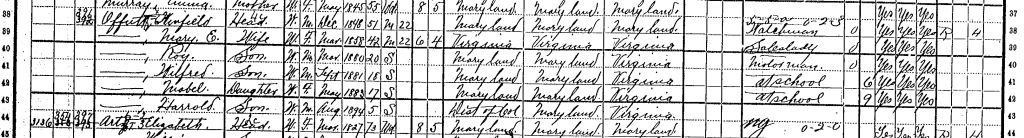 38 Murray, Emma Mother W F May 1845 55 Wd 8 5 Maryland Maryland Maryland Yes Yes Yes 37
39 Offutt, Winfield Head W M Dec 1848 51 M 22 Maryland Maryland Maryland Watchman 0 Yes Yes Yes R H 38
40 ——, Mary E. Wife W F Mar 1858 42 M 22 6 4 Virginia Virginia Virginia Saleslady 0 Yes Yes Yes 39
——, Roy Son W M Mar 1880 20 S Maryland Maryland Virginia Motorman 0 Yes Yes Yes 40
41 ——, Wilfred Son W M Sept 1881 18 S Maryland Maryland Virginia At school 6 Yes Yes Yes 41
42 ——, Mabel Daughter W F May 1883 17 S Maryland Maryland Virginia At school 9 Yes Yes Yes 42
——, Harrold Son W M Aug 1894 5 S Dist of Col Maryland Virginia 43
44 3136 Elizabeth Head W F Mar 1827 73 Wd 8 5 Maryland Maryland Maryland 0-2-0 Yes Yes Yes R H 44
45